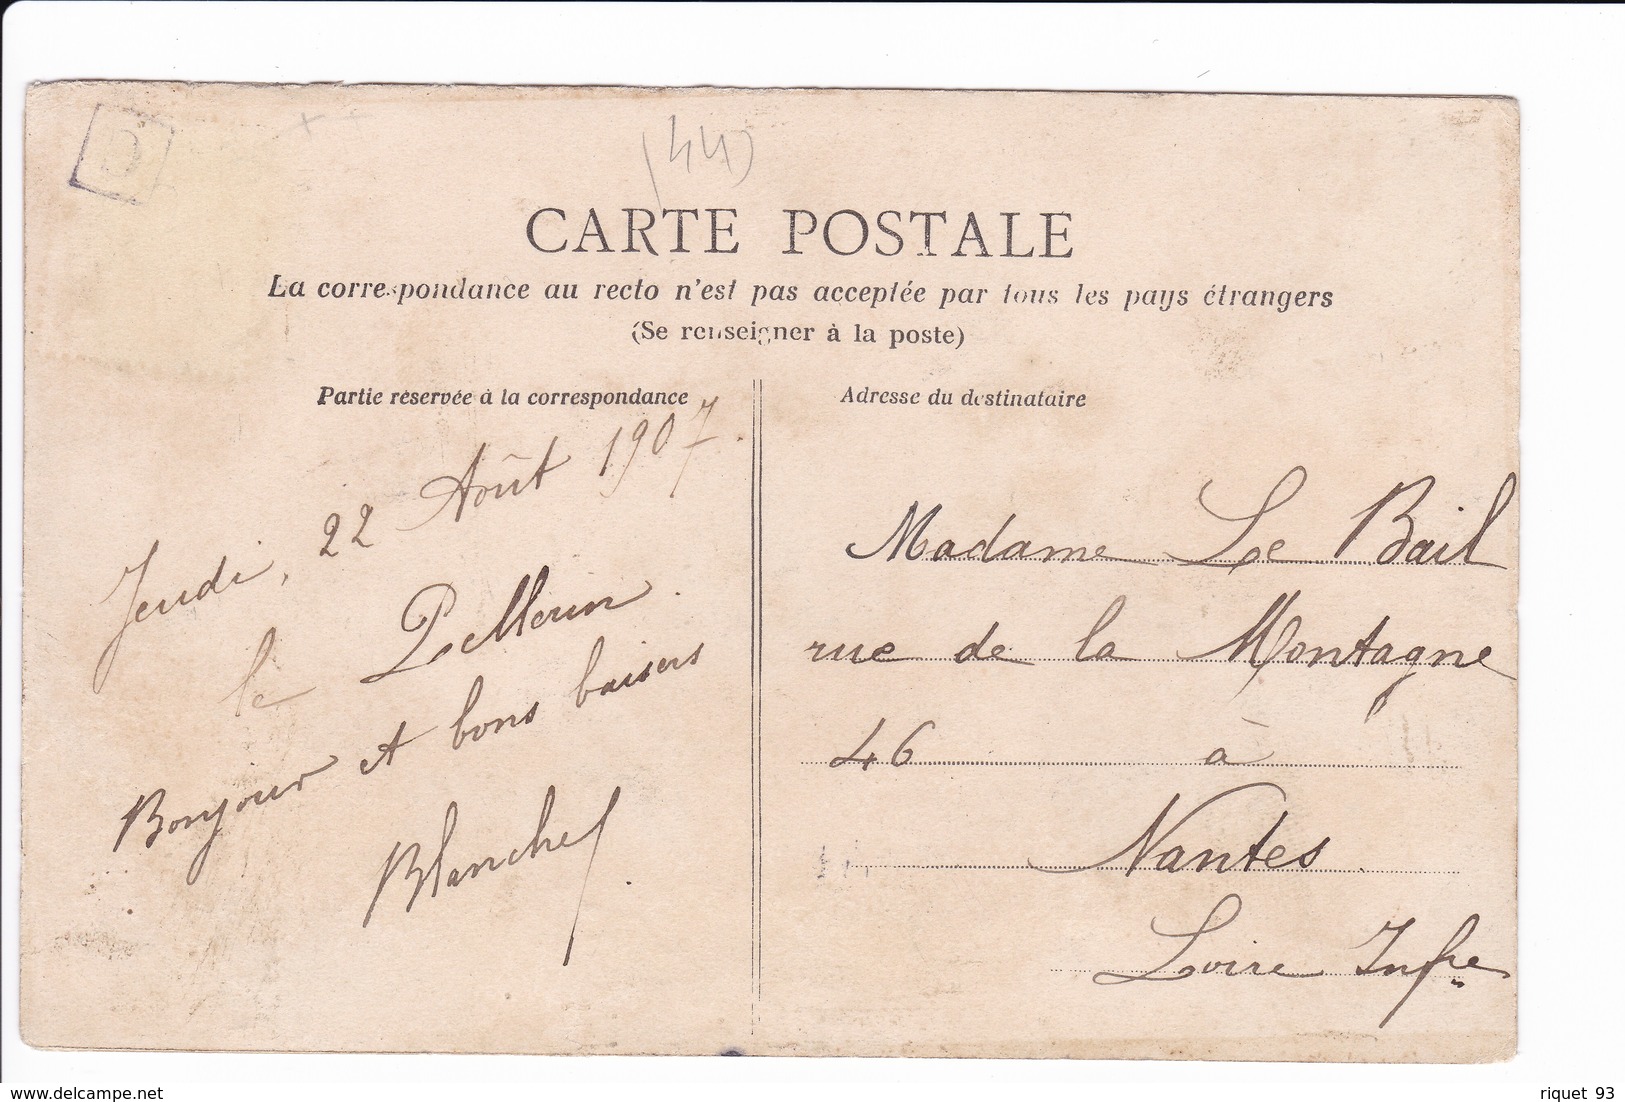 D
(44)
CARTE POSTALE
La correspondance au recto n'est pas acceptée par tous les pays étrangers
(Se renseigner à la poste)
Partie réservée à la correspondance
Jeudi, 22 Août 1907.
le Pellerin.
Bonjour et bons baisers
Blanche
Adresse du destinataire
Madame Le Bail
rue de la Montagne
46 à
Nantes
Loire Infre
delcampe.net
riquet 93